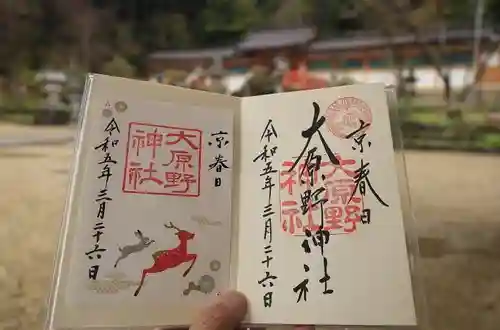 京春日
大原野
神社
令和五年三月二十六日
京春日
大原野神社
大原野
神社
令和五年三月二十六日